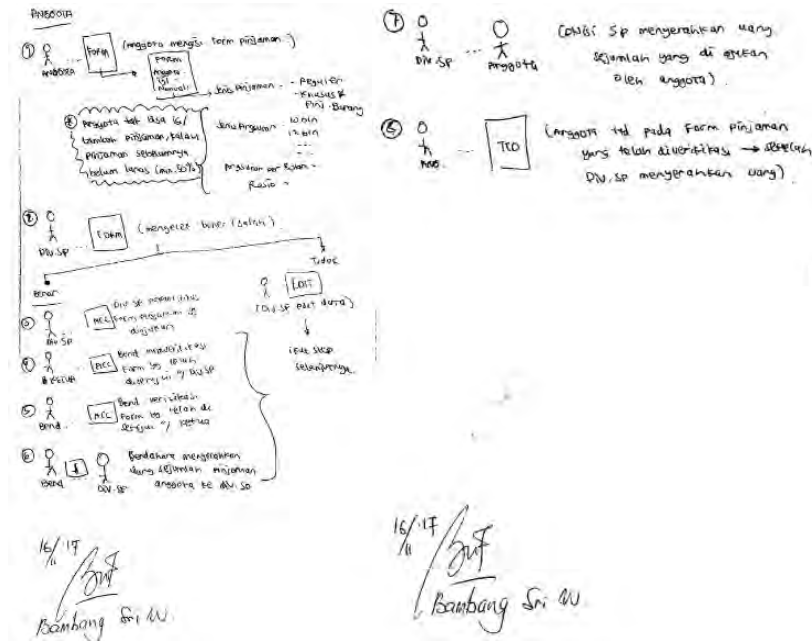 ANGGOTA
① ANGGOTA ... FORM (Anggota mengisi form pinjaman)
FORM
Anggota
isi
Manual
Jenis Pinjaman - Reguler
- Khusus &
Pinj. Barang
Anggota tdk bisa
tambah pinjaman, kalau
pinjaman sebelumnya
belum lunas (min. 50%)
Jenis Angsuran - 10 bln
- 12 bln
Angsuran per Bulan -
② Div. SP ... FORM (mengecek benar/salah)
Benar
Tidak
EDIT
(Div. SP edit data)
ikut step
selanjutnya
③ Div SP ACC Div SP
Form Pinjaman yg
diajukan
④ KETUA ACC Bend
Form yg telah
disetujui o/ Div. SP
⑤ Bend. ACC Bend verifikasi
Form yg telah di
setujui o/ Ketua
⑥ Bend Div. SP Bendahara menyerahkan
uang sejumlah pinjaman
anggota ke div. SP
16/11 '17
Bambang Sri W.
⑦ Div. SP ... Anggota (Divisi SP menyerahkan uang
sejumlah yang di ajukan
oleh anggota)
⑧ Ang. ... TTD (Anggota ttd pada Form pinjaman
yang telah diverifikasi → setelah
Div. SP menyerahkan uang)
16/11 '17
Bambang Sri W.